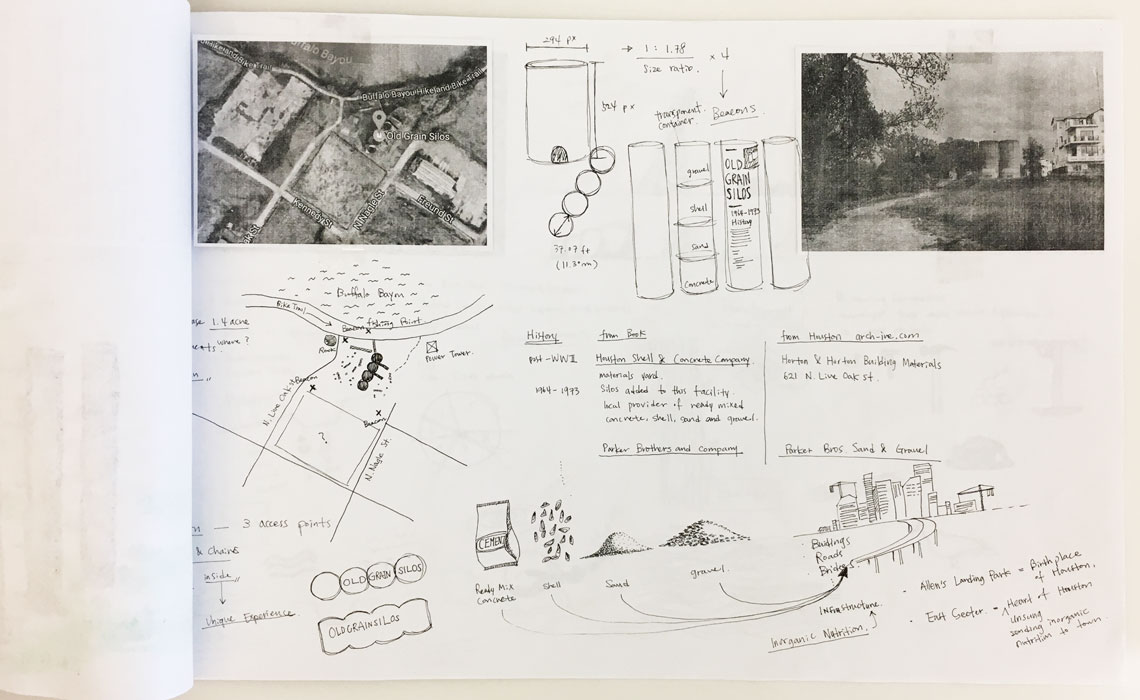 Buffalo Bayou
Buffalo Bayou Hike and Bike Trail
Old Grain Silos
Kennedy St
N Nagle St
Freund St
294 px
524 px
→ 1 : 1.78
size ratio.
× 4
transparent
container.
Beacons
37.07 ft
(11.30m)
gravel
shell
sand
concrete
OLD
GRAIN
SILOS
1964-1973
History
Buffalo Bayou
Bike Trail
Beacon
fishing Point
Rock
Power Tower.
1.4 acre
where ?
Beacon
N. Live Oak St
Beacon
?
N. Nagle St.
History
from Book
from Houston arch-ive.com
post-WWII
Houston Shell & Concrete Company
materials yard.
1964-1973
Silos added to this facility.
local provider of ready mixed
concrete, shell, sand and gravel.
Parker Brothers and Company
Horton & Horton Building Materials
621 N. Live Oak st.
Parker Bros. Sand & Gravel
— 3 access points
& Chains
inside
Unique Experience
OLD GRAIN SILOS
OLDGRAINSILOS
CEMENT
Ready Mix
Concrete
shell
Sand
gravel
Buildings
Roads
Bridges
Infrastructure.
Inorganic Nutrition.
• Allen's Landing Park = Birthplace
of Houston.
• East Sector = Heart of Houston
Unsung
sending inorganic
nutrition to town.